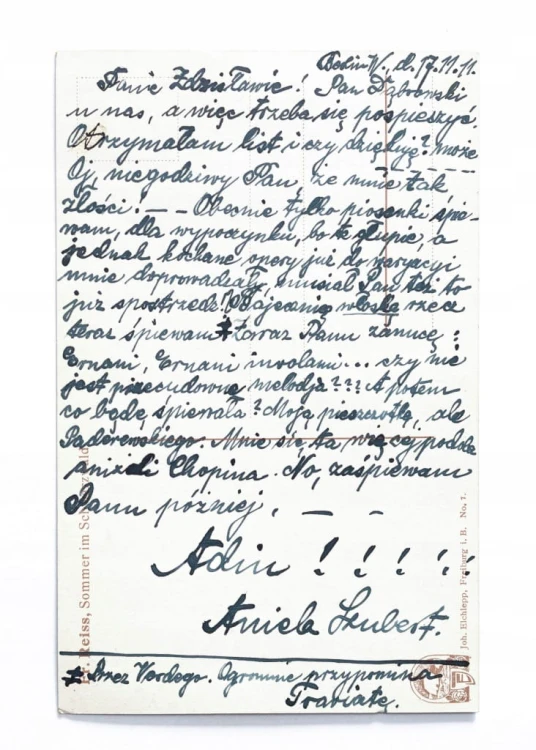 Berlin W. d. 17.11.11.
Panie Zdzisławie! Pan Dąbrowski
u nas, a więc trzeba się pospieszyć.
Otrzymałam list i czy dziękuję? może
Oj, niegodziwy Pan, że mnie tak
złości! — — Obecnie tylko piosenki śpie-
wam, dla wypoczynku, bo te głupie, a
jednak kochane opery już do waryacyi
mnie doprowadzały, musiał Pan też to
już spostrzedz! Bajecznie włoską rzecz
teraz śpiewam ‡ Zaraz Panu zanucę:
Ernani, Ernani involami... czy nie
jest przecudowne melodja??? A potem
co będę śpiewała? Moją pieszczotkę, ale
Paderewskiego. Mnie się ta więcej podoba
aniżeli Chopina. No, zaśpiewam
Panu później, — —
Adin !!!!!
Aniela Szubert.
‡ Przez Verdego. Ogromnie przypomina
Traviatę.
Fr. Reiss, Sommer im Schwarzwald
Joh. Elchlepp, Freiburg i. B. No. 1.